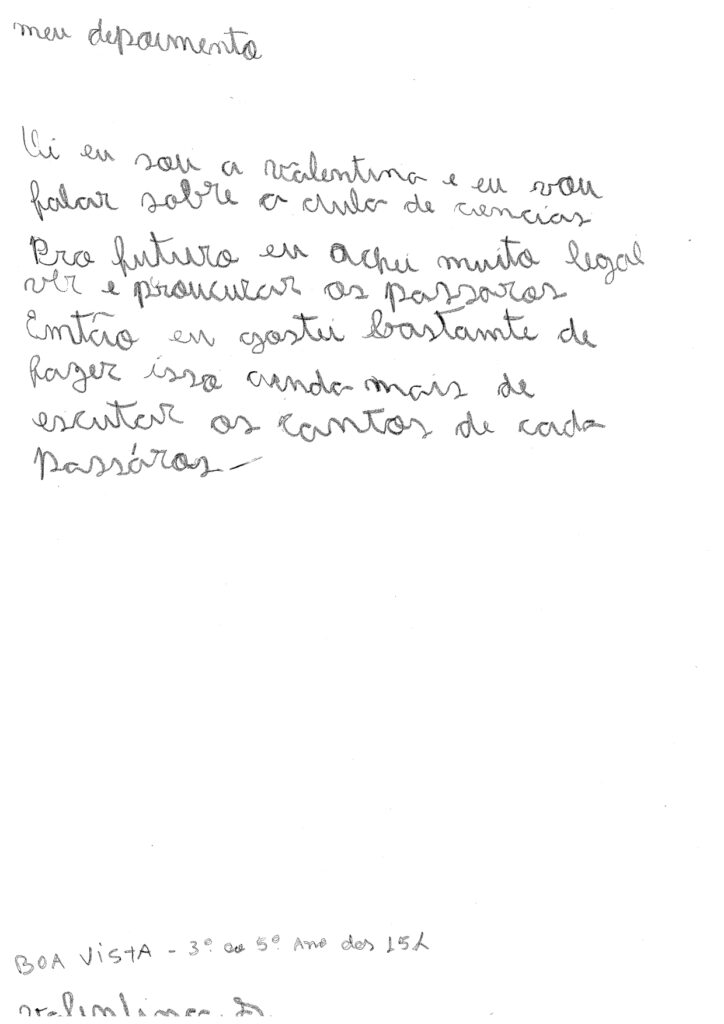 meu depoimento
Oi eu sou a valentina e eu vou
falar sobre a aula de ciencias
Pro futuro eu achei muito legal
ver e proucurar os passaros
Emtão eu gostei bastamte de
fazer isso ainda mais de
escutar os cantos de cada
passáros
BOA VISTA - 3º ao 5º Ano das 15h
valentina D.